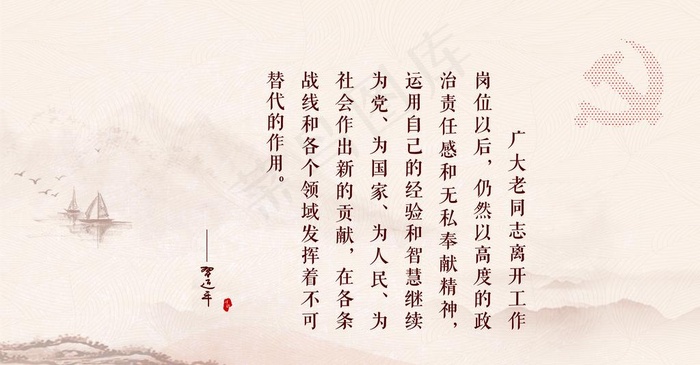 广大老同志离开工作
岗位以后，仍然以高度的政
治责任感和无私奉献精神，
运用自己的经验和智慧继续
为党、为国家、为人民、为
社会作出新的贡献，在各条
战线和各个领域发挥着不可
替代的作用。